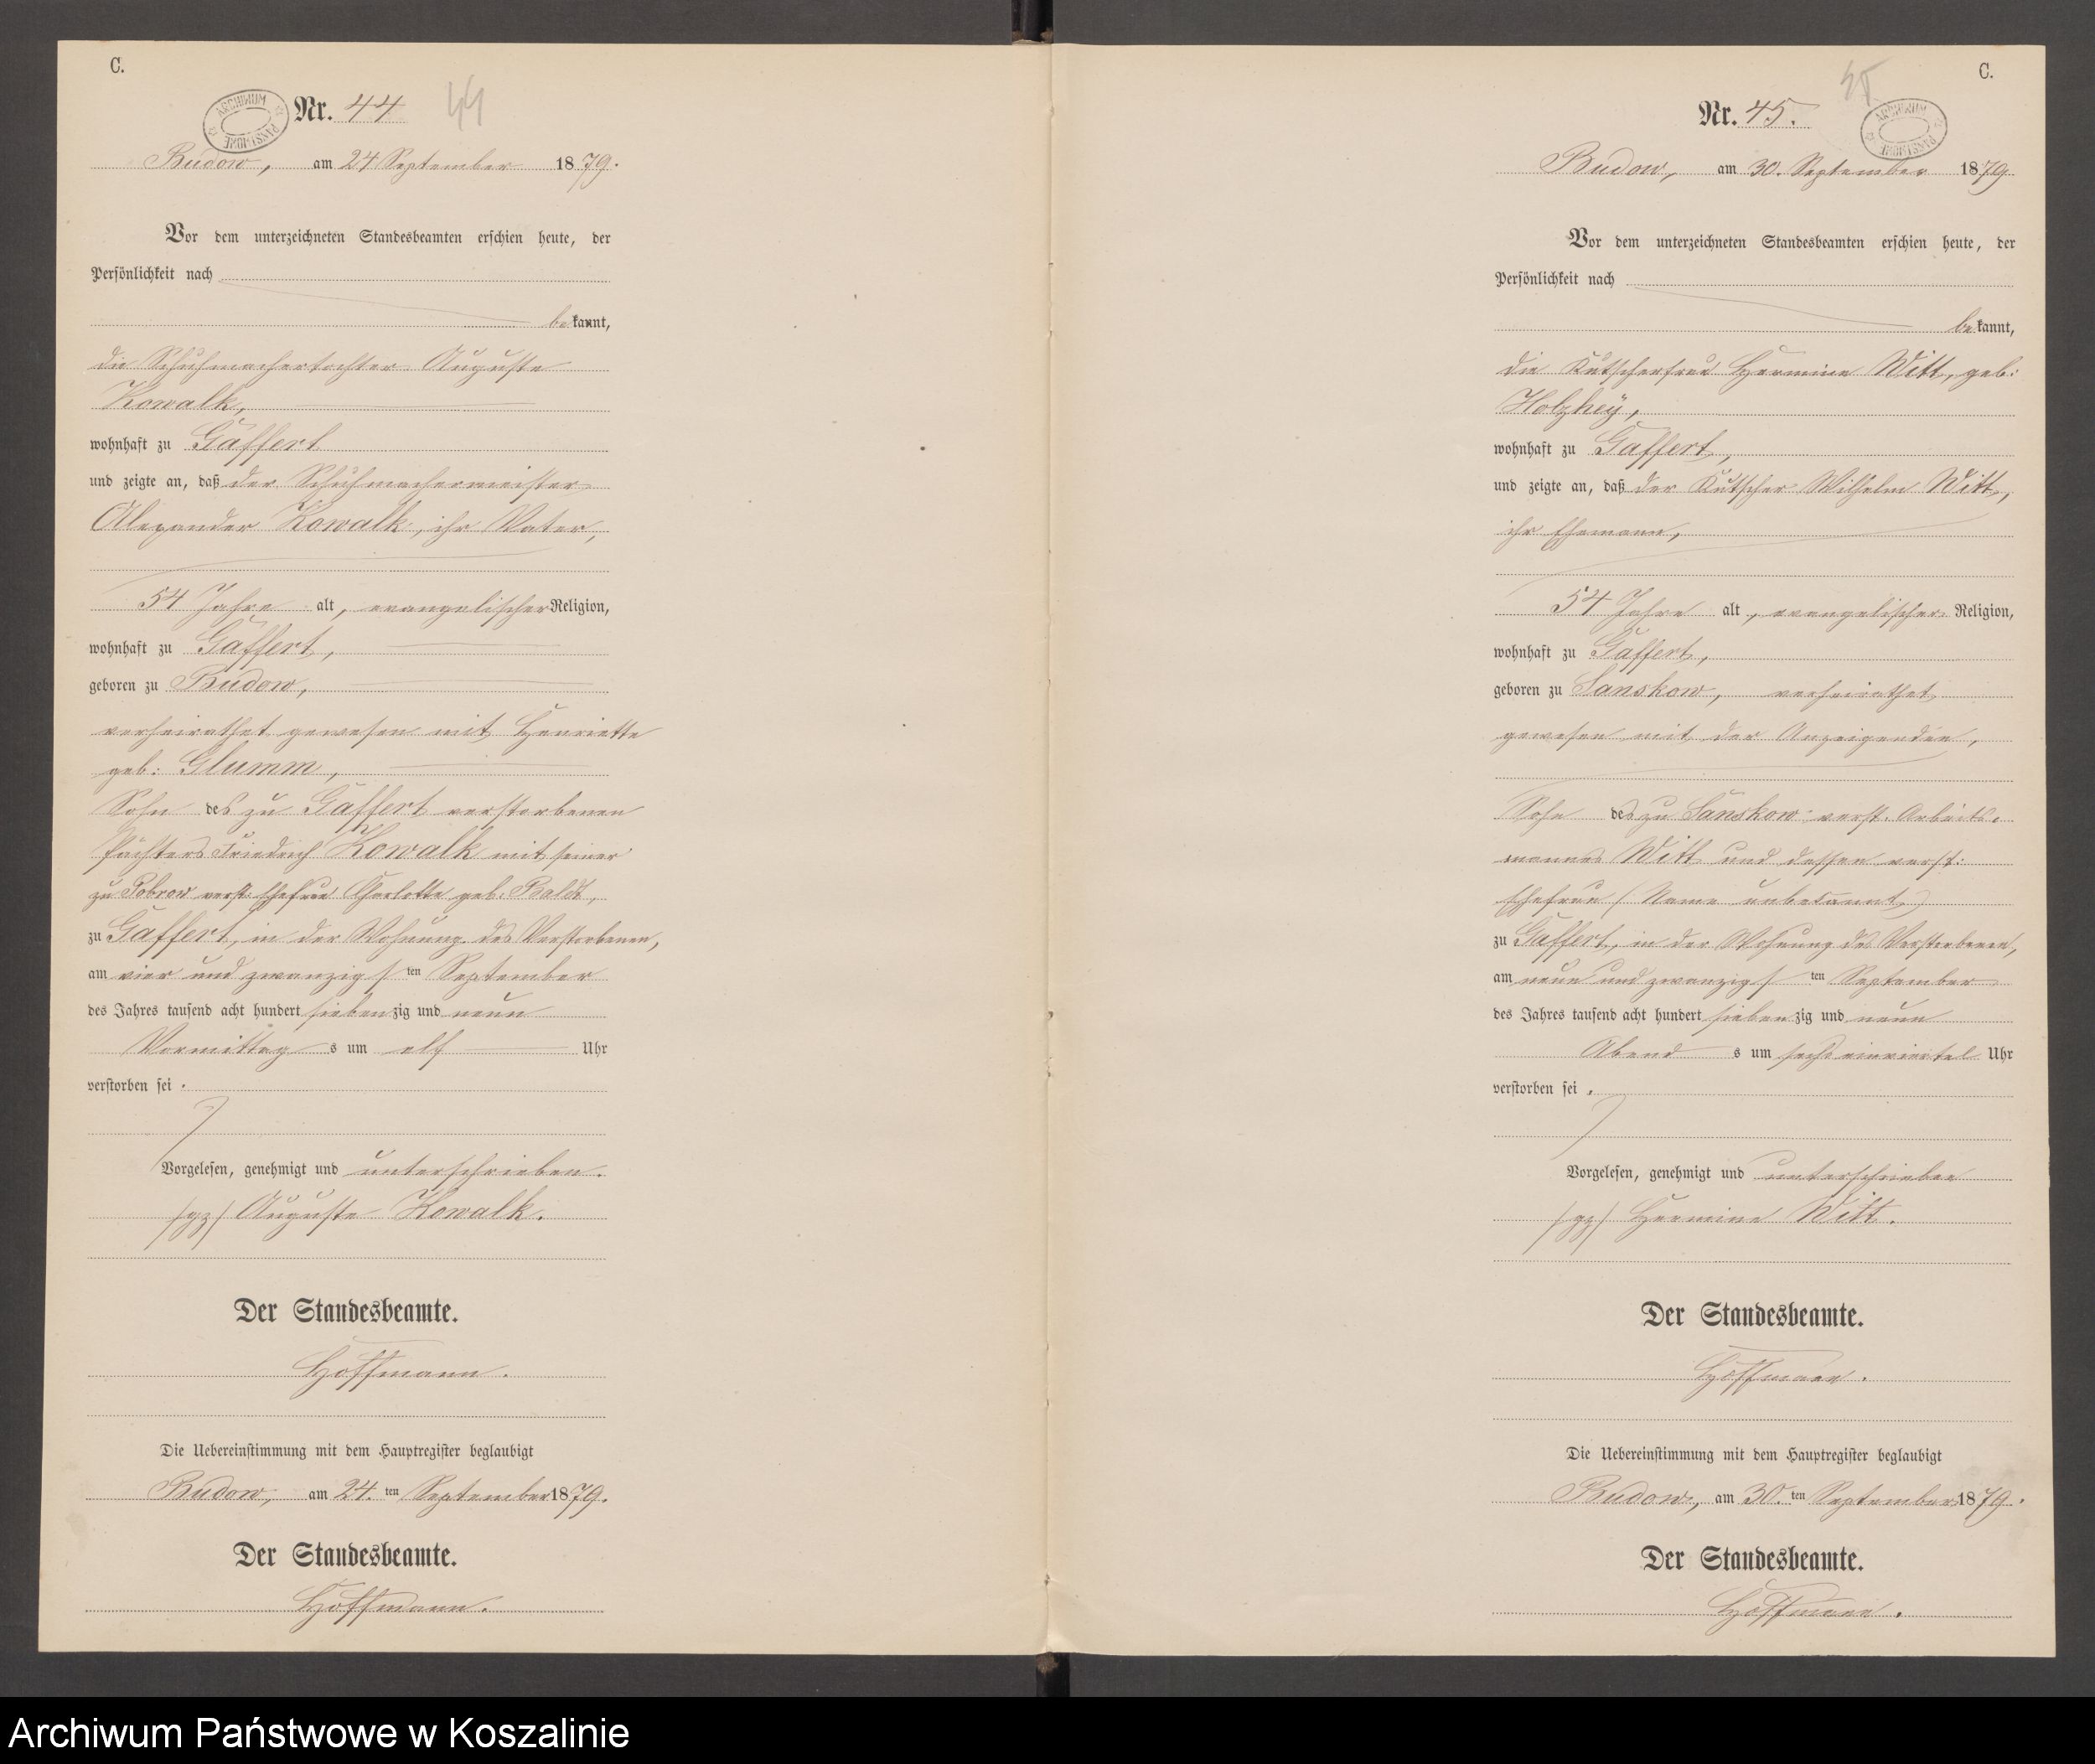 C.
ARCHIWUM PAŃSTWOWE
Nr. 44
44
Budow, am 24 September 1879.
Vor dem unterzeichneten Standesbeamten erschien heute, der
Persönlichkeit nach
bekannt,
die Schuhmachertochter Auguste
Kowalk,
wohnhaft zu Gaffert
und zeigte an, daß der Schuhmachermeister
Alexander Kowalk, ihr Vater,
54 Jahre alt, evangelischer Religion,
wohnhaft zu Gaffert,
geboren zu Budow,
verheirathet gewesen mit Henriette
geb: Glumm,
Sohn des zu Gaffert verstorbenen
Pächters Friedrich Kowalk mit seiner
zu Pobrow verst. Ehefrau Charlotte geb. Baldt,
zu Gaffert, in der Wohnung des Verstorbenen,
am vier und zwanzigsten September
des Jahres tausend acht hundert siebenzig und neun
Vormittags um elf Uhr
verstorben sei.
Vorgelesen, genehmigt und unterschrieben.
/gz/ Auguste Kowalk.
Der Standesbeamte.
Hoffmann.
Die Uebereinstimmung mit dem Hauptregister beglaubigt
Budow, am 24.ten September 1879.
Der Standesbeamte.
Hoffmann.
C.
45
ARCHIWUM PAŃSTWOWE
Nr. 45.
Budow, am 30. September 1879
Vor dem unterzeichneten Standesbeamten erschien heute, der
Persönlichkeit nach
bekannt,
die Kutscherfrau Hermine Witt, geb:
Holzhey,
wohnhaft zu Gaffert,
und zeigte an, daß der Kutscher Wilhelm Witt,
ihr Ehemann,
54 Jahre alt, evangelischer Religion,
wohnhaft zu Gaffert,
geboren zu Sanskow, verheirathet
gewesen mit der Anzeigenden,
Sohn des zu Sanskow verst. Arbeits-
mannes Witt und dessen verst:
Ehefrau (Name unbekannt)
zu Gaffert, in der Wohnung des Verstorbenen,
am neun und zwanzigsten September
des Jahres tausend acht hundert siebenzig und neun
Abends um sechs einviertel Uhr
verstorben sei.
Vorgelesen, genehmigt und unterschrieben
/gz/ Hermine Witt.
Der Standesbeamte.
Hoffmann.
Die Uebereinstimmung mit dem Hauptregister beglaubigt
Budow, am 30.ten September 1879.
Der Standesbeamte.
Hoffmann.
Archiwum Państwowe w Koszalinie